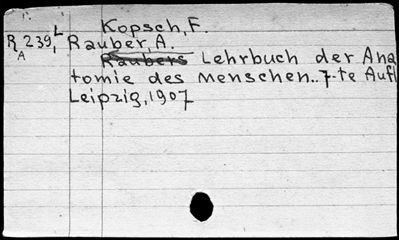 Kopsch, F.
R 239, L Rauber, A.
A 1
Raubers Lehrbuch der Ana
tomie des Menschen.. 7-te Aufl
Leipzig, 1907